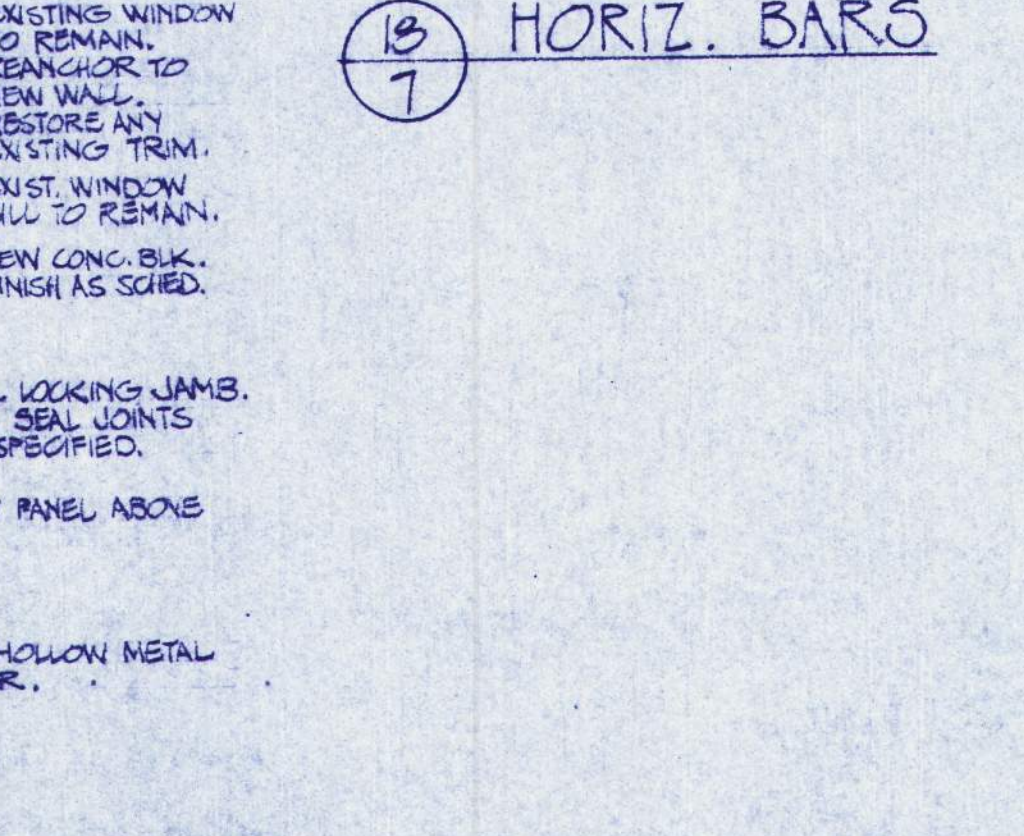 XISTING WINDOW
O REMAIN.
EANCHOR TO
EW WALL.
ESTORE ANY
XISTING TRIM.
XIST. WINDOW
ILL TO REMAIN.
EW CONC. BLK.
INISH AS SCHED.
. LOCKING JAMB.
SEAL JOINTS
SPECIFIED.
PANEL ABOVE
HOLLOW METAL
R.
13
7
HORIZ. BARS